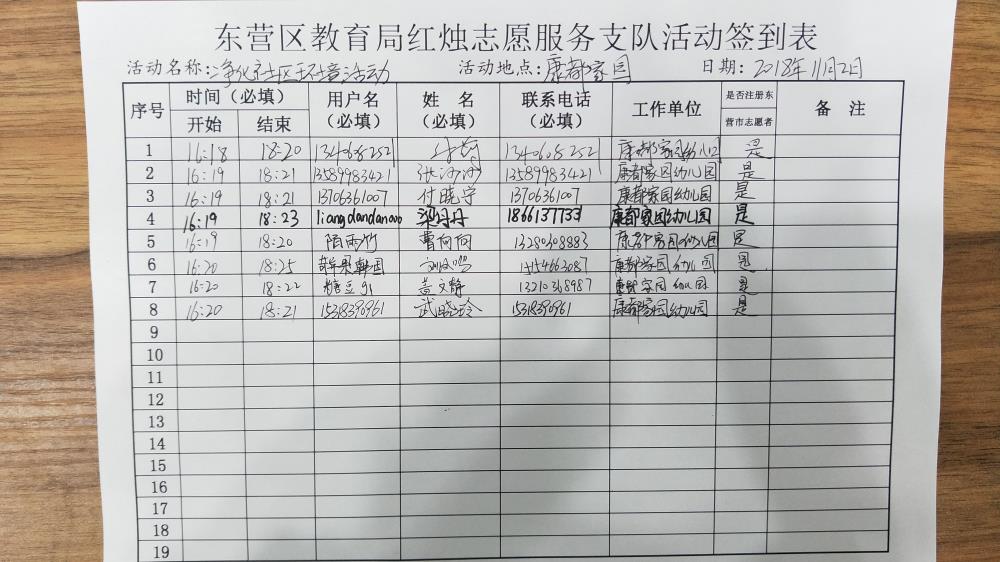 东营区教育局红烛志愿服务支队活动签到表
活动名称：净化社区环境活动 活动地点：康都家园 日期：2018年11月2日
序号 时间（必填） 用户名（必填） 姓名（必填） 联系电话（必填） 工作单位（必填） 是否注册东营市志愿者 备注
开始 结束
1 16:18 18:20 康都家园幼儿园 是
2 16:19 18:21 13589983421 13589983421 康都家园幼儿园 是
3 16:19 18:21 13706361007 付晓宇 13706361007 康都家园幼儿园 是
4 16:19 18:23 liangdandanooo 梁丹丹 1866137733 康都家园幼儿园 是
5 16:19 18:20 隋雨竹 曹向向 13280308883 康都家园幼儿园 是
6 16:20 18:25 康都家园幼儿园 是
7 16:20 18:22 糖豆儿 黄文静 13210348987 康都家园幼儿园 是
8 16:20 18:21 15318390961 武晓玲 15318390961 康都家园幼儿园 是
9
10
11
12
13
14
15
16
17
18
19